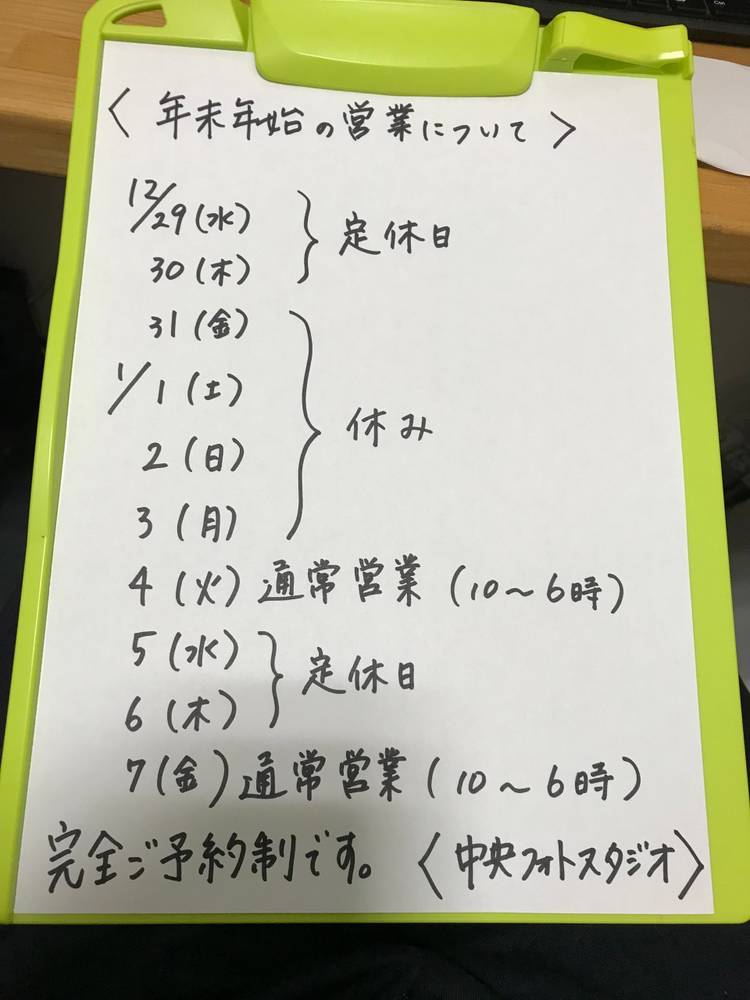 〈年末年始の営業について〉
12/29(水)
30(木) } 定休日
31(金)
1/1(土)
2(日) } 休み
3(月)
4(火)通常営業(10〜6時)
5(水)
6(木) } 定休日
7(金)通常営業(10〜6時)
完全ご予約制です。〈中央フォトスタジオ〉